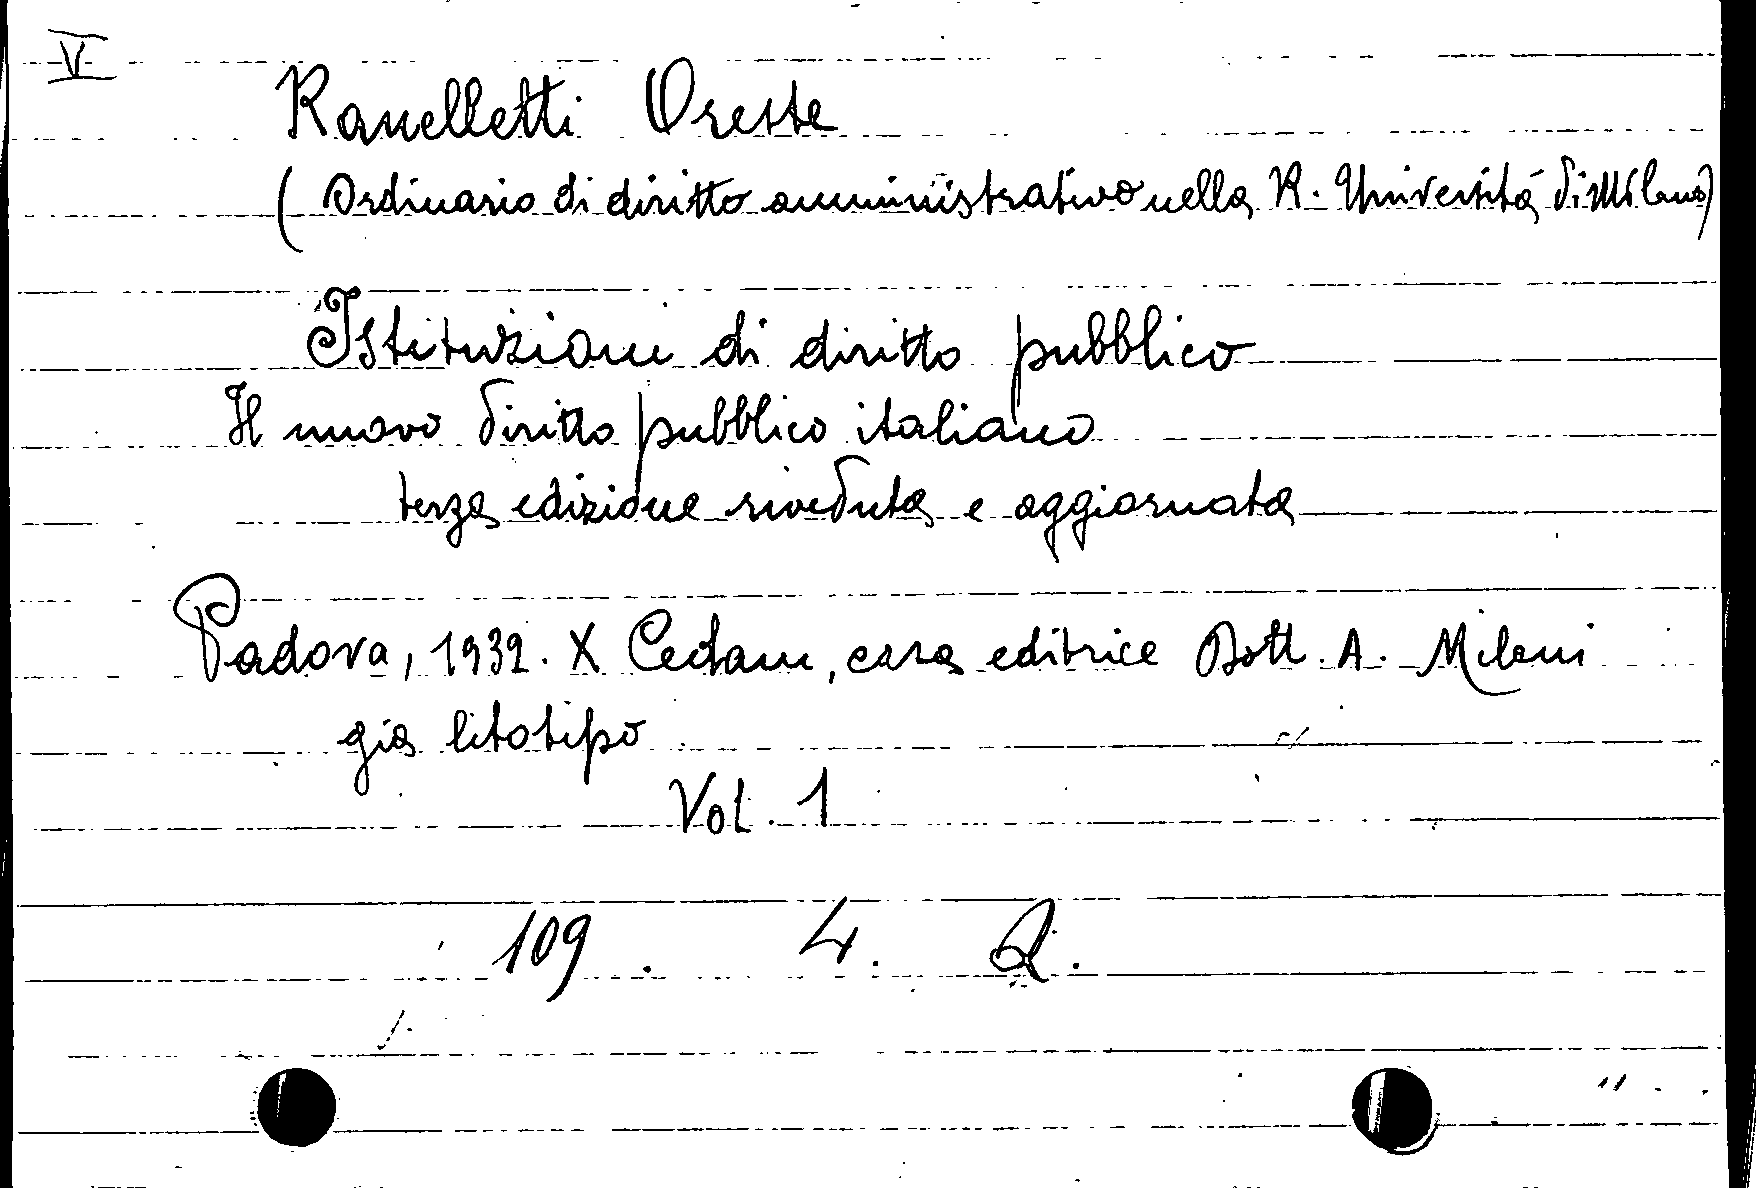 V
Ranelletti Oreste
( Ordinario di diritto amministrativo nella R. Università di Milano)
Istituzioni di diritto pubblico
Il nuovo diritto pubblico italiano
terza edizione riveduta e aggiornata
Padova, 1932. X Cedam, casa editrice Dott. A. Milani
già litotipo
Vol. 1
109. 4. Q.